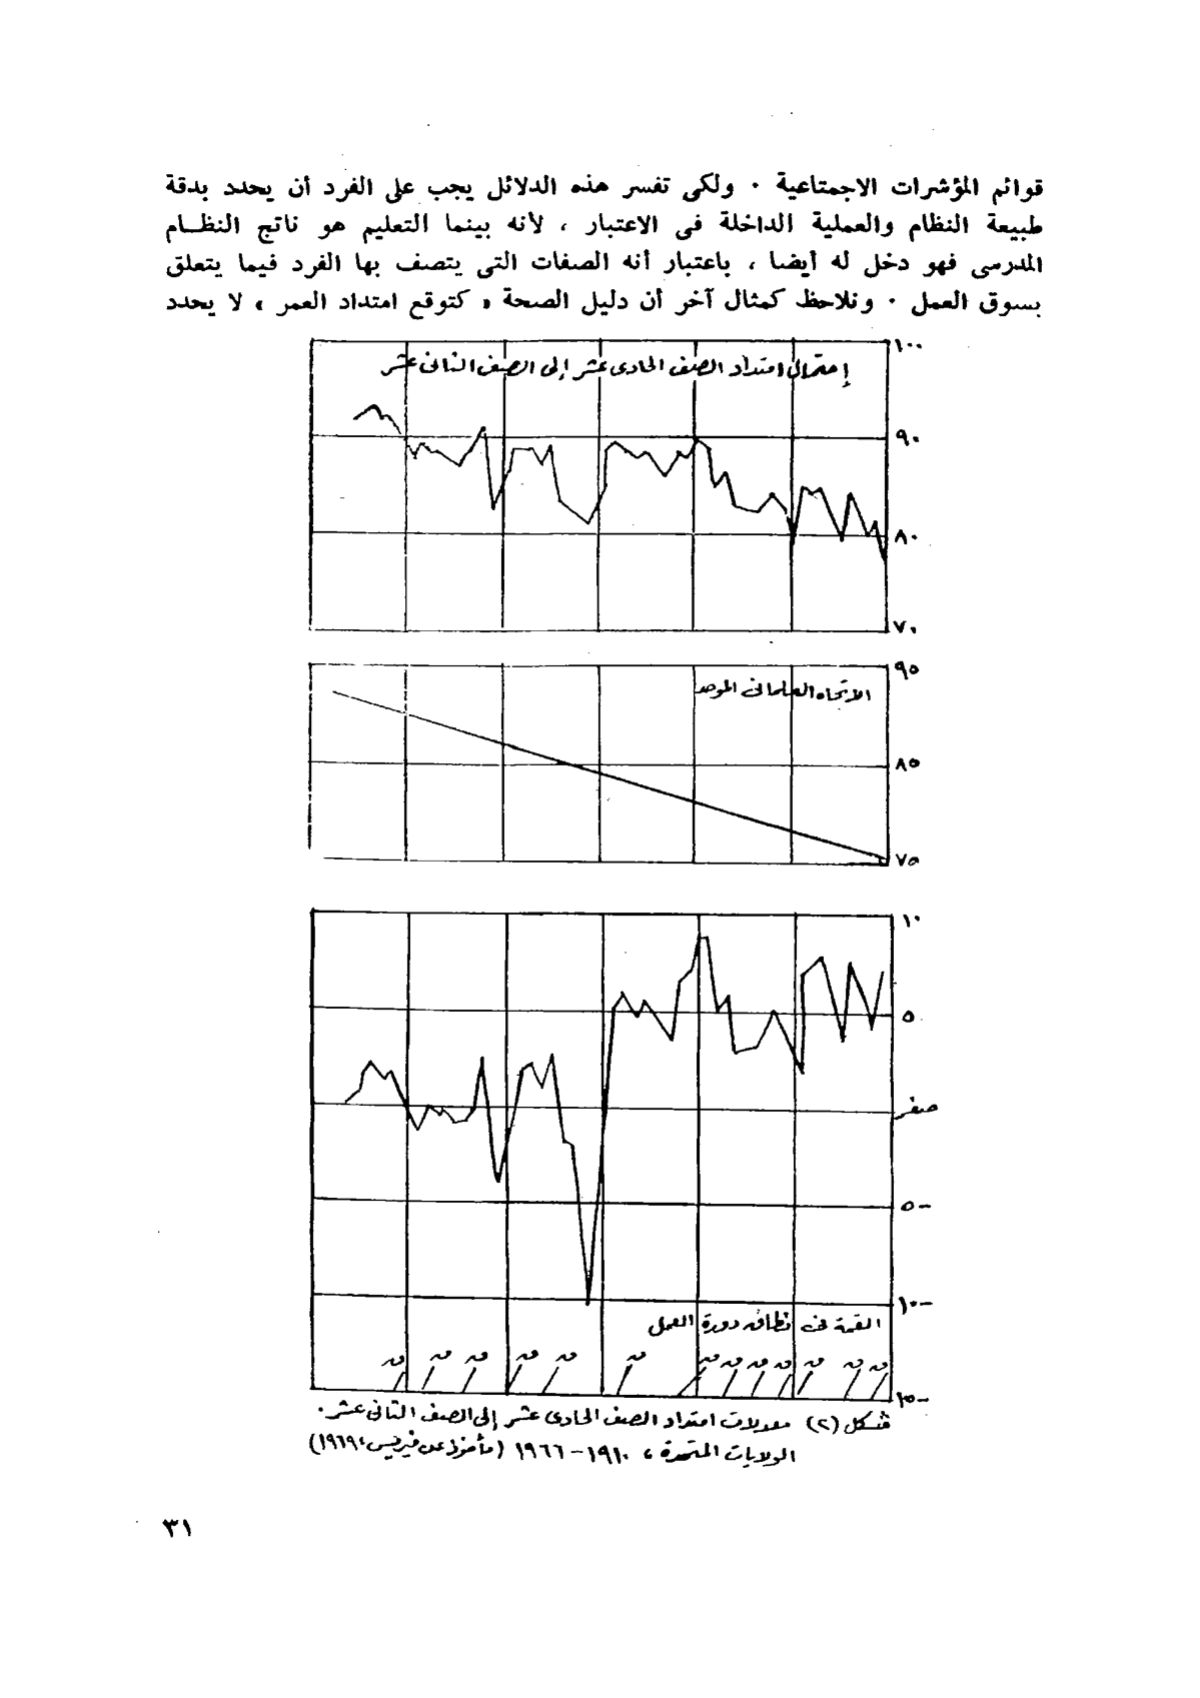 قوائم المؤشرات الاجمتاعية ٠ ولكى تفسر هذه الدلائل يجب على الفرد أن يحدد بدقة
طبيعة النظام والعملية الداخلة فى الاعتبار ، لأنه بينما التعليم هو ناتج النظـام
المدرسى فهو دخل له أيضا ، باعتبار أنه الصفات التى يتصف بها الفرد فيما يتعلق
بسوق العمل ٠ ونلاحظ كمثال آخر أن دليل الصحة « كتوقع امتداد العمر » لا يحدد
إحتمالى امتداد الصف الحادى عشر إلى الصف الثانى عشر
١٠٠
٩٠
٨٠
٧٠
الاتجاه العلمانى الموحد
٩٥
٨٥
٧٥
١٠
٥
صفر
٥-
١٠-
القمة فى نطاق دورة العمل
ق ق ق ق ق ق ق ق ق ق ق ق ق
١٥-
شكل (٢) معدلات امتداد الصف الحادى عشر إلى الصف الثانى عشر.
الولايات المتحدة ، ١٩١٠-١٩٦٦ (مأخوذ عن فيريس، ١٩٦٩)
٣١